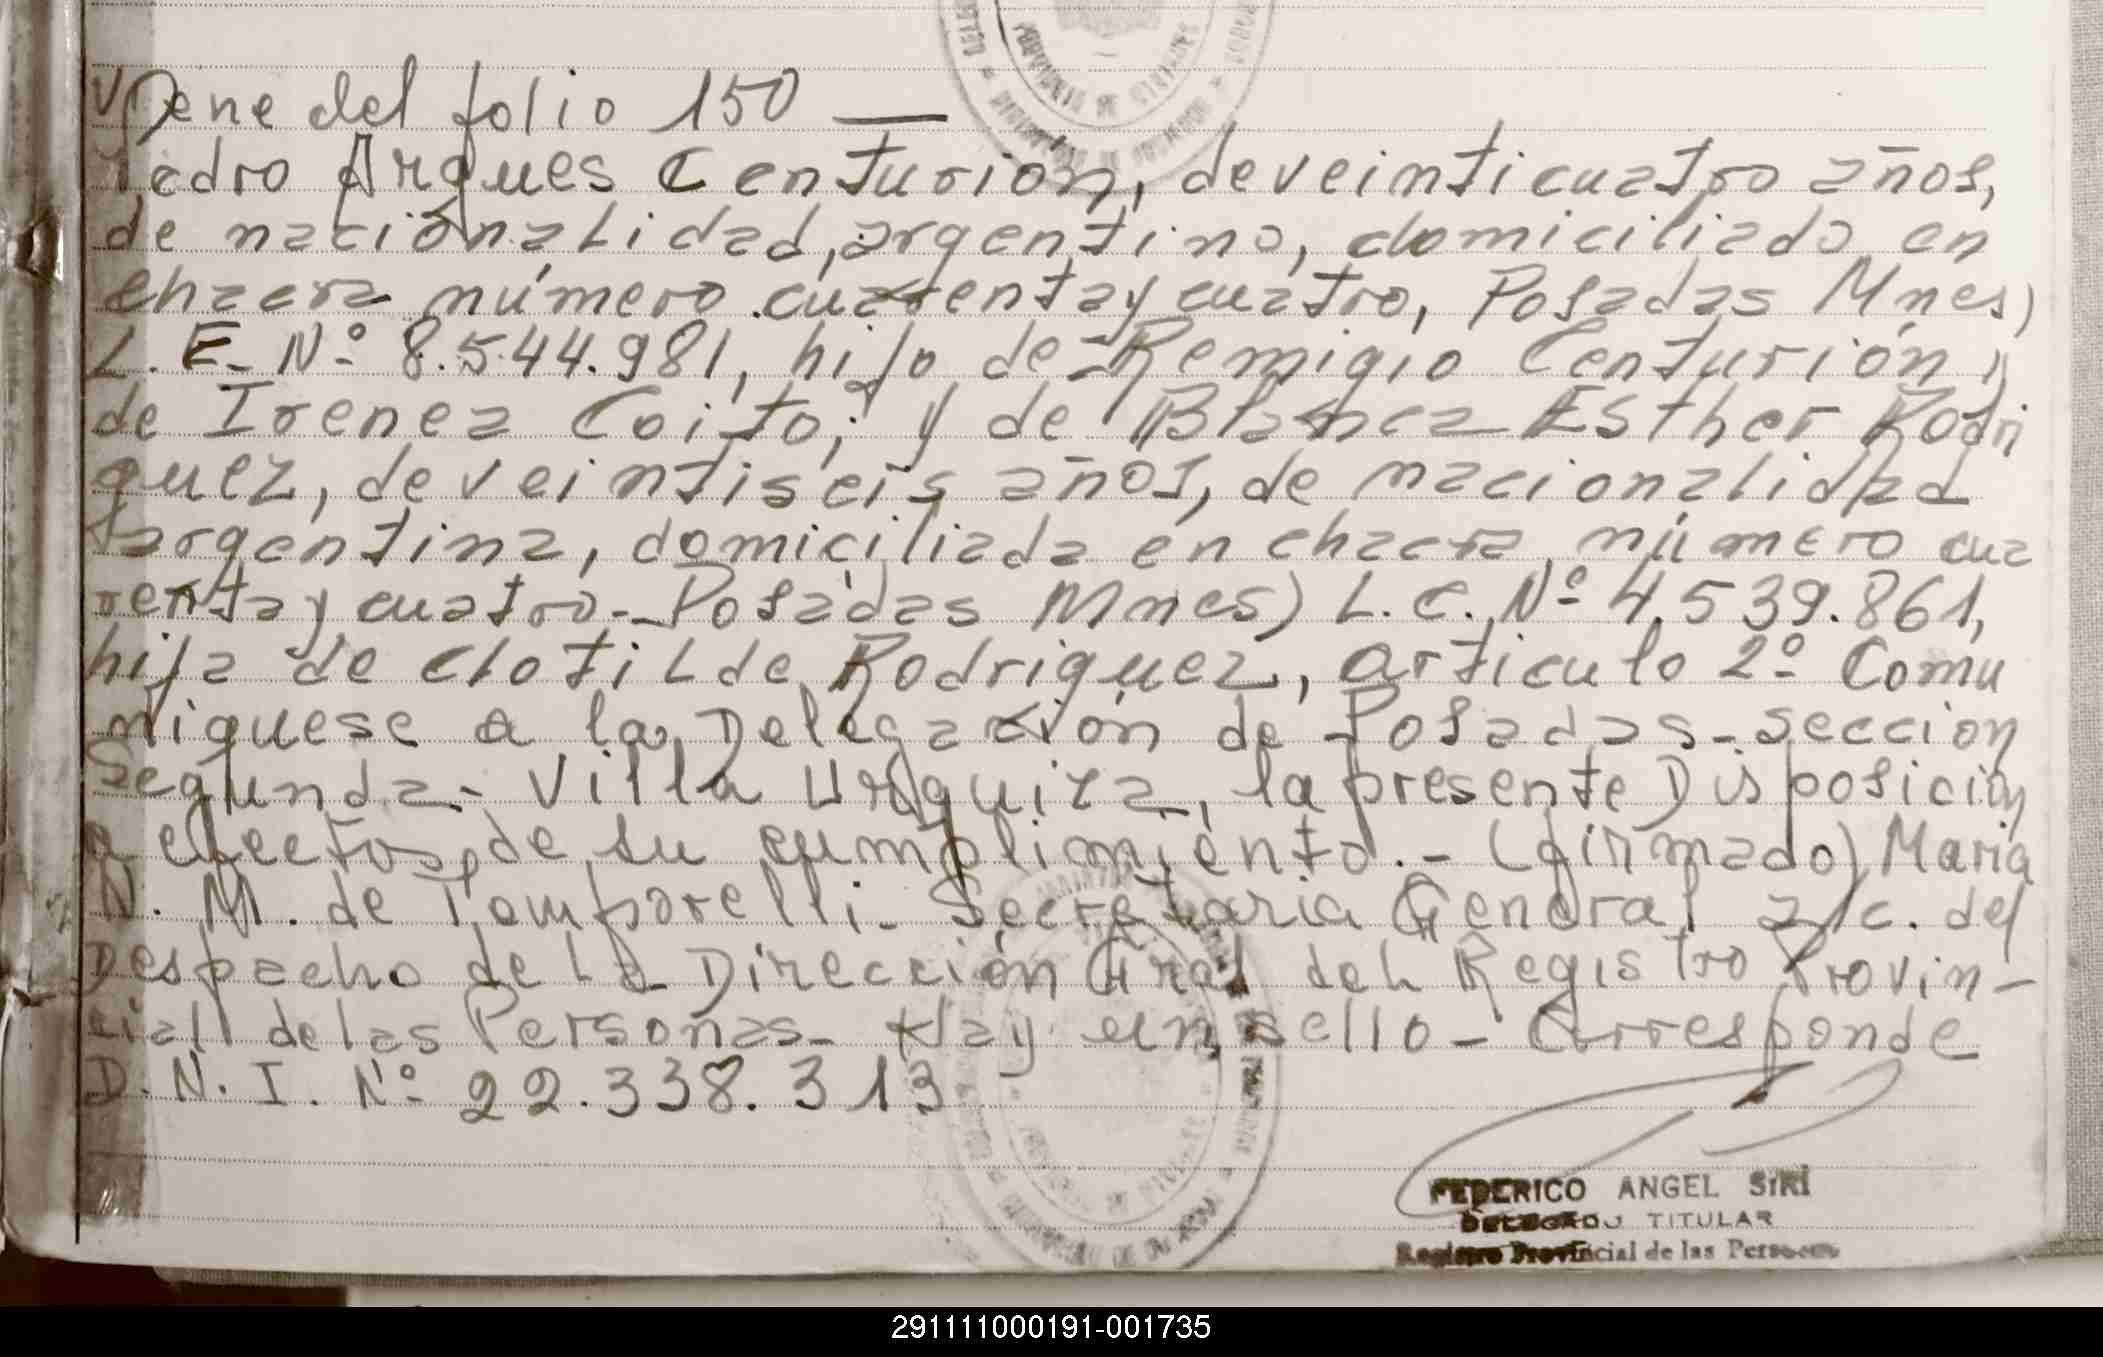 Viene del folio 150 —
Pedro Arques Centurión, de veinticuatro años,
de nacionalidad, argentino, domiciliado en
chacra número cuarenta y cuatro, Posadas Mnes)
L. E. Nº 8.544.981, hijo de Remigio Centurión y
de Irenea Coito; y de Blanca Esther Rodri
guez, de veintiseis años, de nacionalidad
argentina, domiciliada en chacra número cua
renta y cuatro - Posadas Mnes) L. C. Nº 4.539.861,
hija de Clotilde Rodriguez, articulo 2º Comu
niquese a la Delegación de Posadas - sección
Segunda - Villa Urquiza, la presente Disposición
a efectos de su cumplimiento. - (firmado) Maria
N. M. de Temporelli - Secretaria General a/c. del
Despacho de la Dirección Gral del Registro Provin-
cial de las Personas - Hay un sello - Corresponde
D. N. I. Nº 22.338.313
FEDERICO ANGEL SIRI
DELEGADO TITULAR
Registro Provincial de las Personas
291111000191-001735